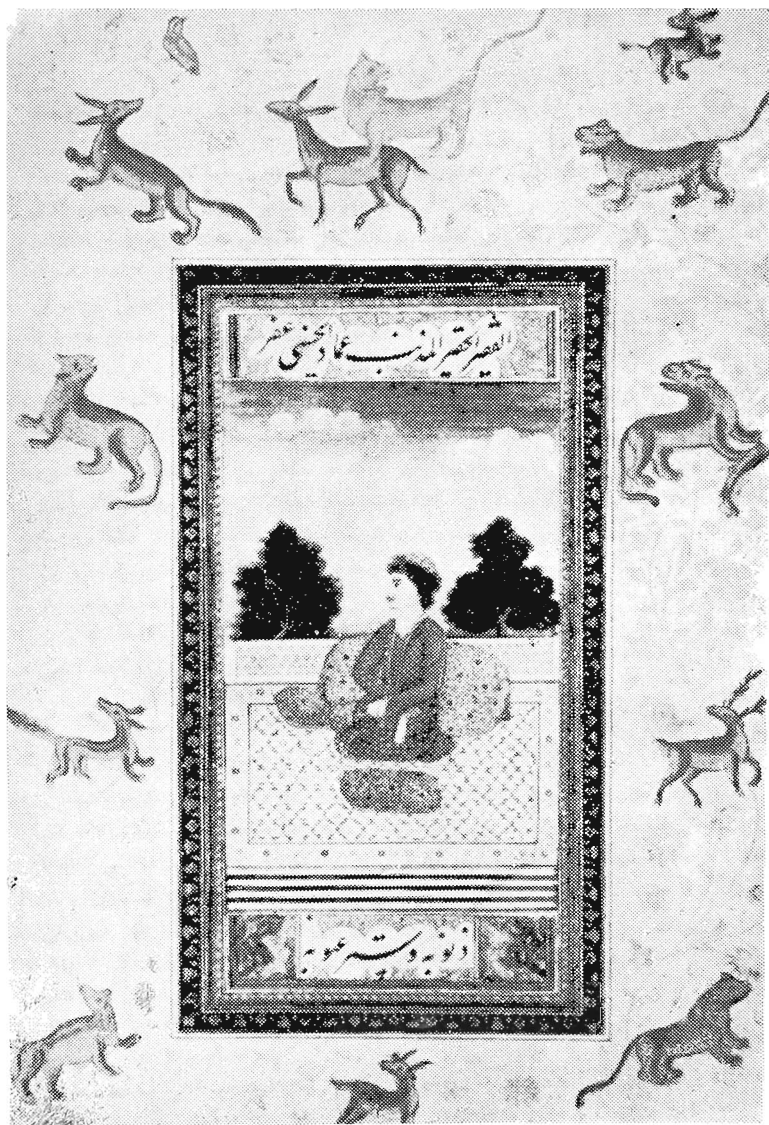 الفقیر الحقیر المذنب عماد الحسنی غفر
ذنوبه و ستر عیوبه